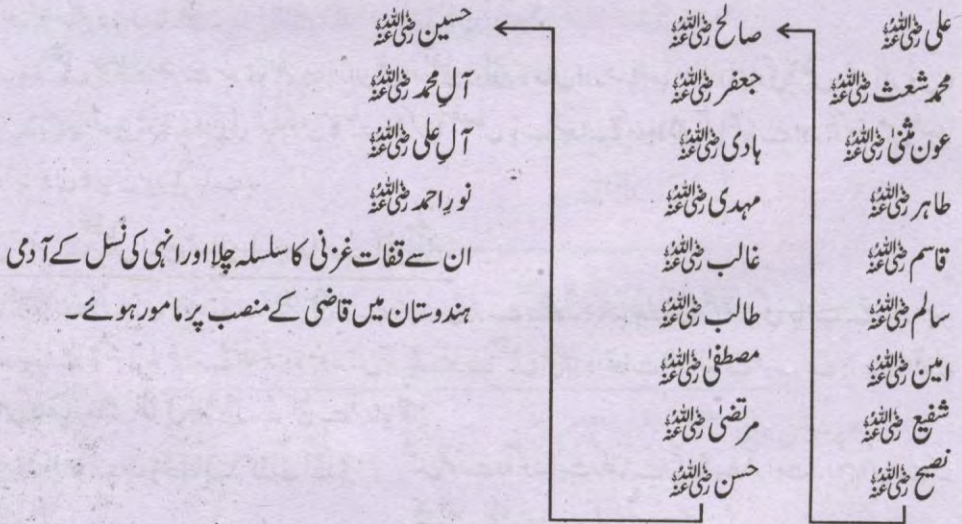 علی رضی اللہ عنہ
محمد شعث رضی اللہ عنہ
عون مثنیٰ رضی اللہ عنہ
طاہر رضی اللہ عنہ
قاسم رضی اللہ عنہ
سالم رضی اللہ عنہ
امین رضی اللہ عنہ
شفیع رضی اللہ عنہ
نصیح رضی اللہ عنہ
صالح رضی اللہ عنہ
جعفر رضی اللہ عنہ
ہادی رضی اللہ عنہ
مہدی رضی اللہ عنہ
غالب رضی اللہ عنہ
طالب رضی اللہ عنہ
مصطفیٰ رضی اللہ عنہ
مرتضیٰ رضی اللہ عنہ
حسن رضی اللہ عنہ
حسین رضی اللہ عنہ
آلِ محمد رضی اللہ عنہ
آلِ علی رضی اللہ عنہ
نورِ احمد رضی اللہ عنہ
ان سے قفات غزنی کا سلسلہ چلا اور انہی کی نسل کے آدمی
ہندوستان میں قاضی کے منصب پر مامور ہوئے۔